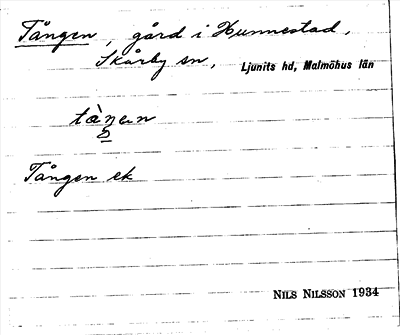 Tången, gård i Hunnestad,
Skårby sn, Ljunits hd, Malmöhus län
Tången ek
NILS NILSSON 1934